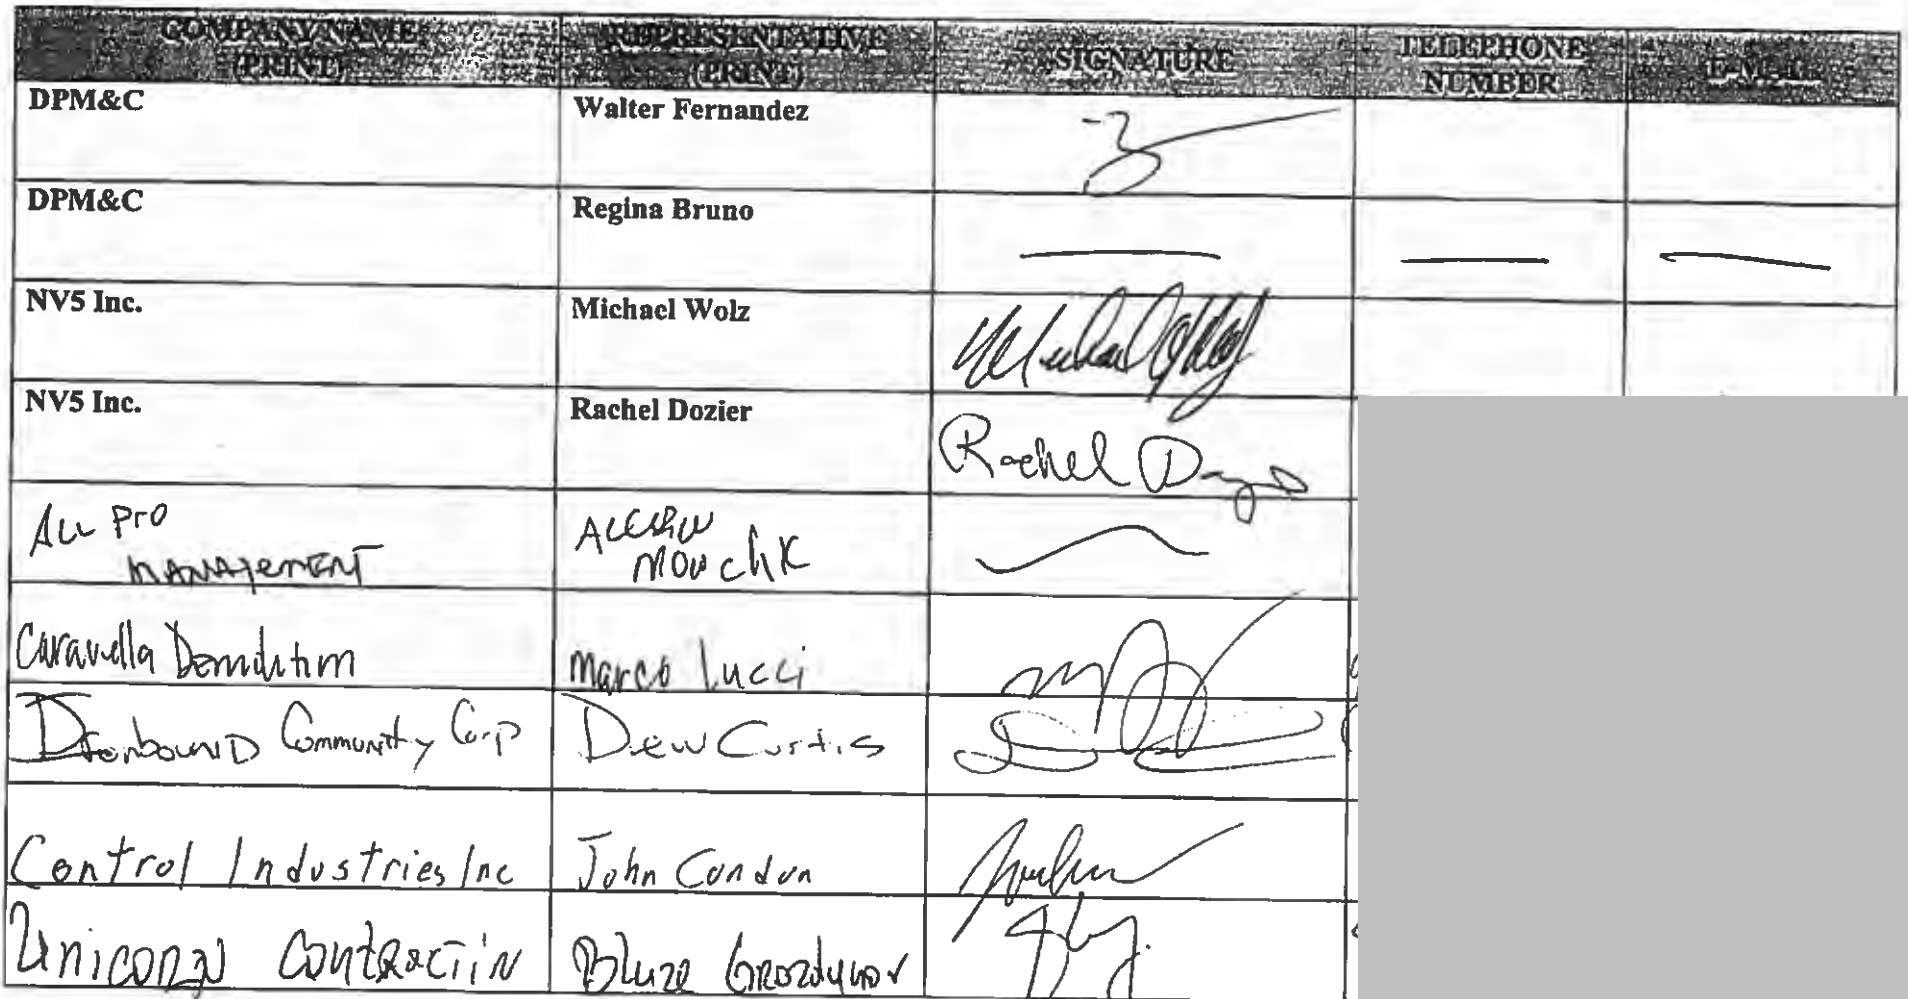 COMPANY NAME REPRESENTATIVE SIGNATURE TELEPHONE E-MAIL
(PRINT) (PRINT) NUMBER
DPM&C Walter Fernandez
DPM&C Regina Bruno
NV5 Inc. Michael Wolz
NV5 Inc. Rachel Dozier Rachel Dozier
ALL PRO
MANAGEMENT
Caravella Demolition Marco Lucci
Ironbound Community Corp Drew Curtis
Control Industries Inc John Condon
Unicorn Contractin